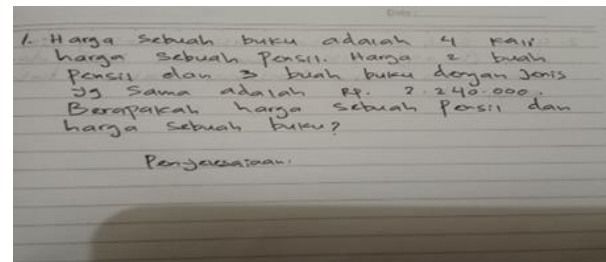 1. Harga sebuah buku adalah 4 kali
harga sebuah Pensil. Harga 2 buah
Pensil dan 3 buah buku dengan jenis
yg sama adalah RP. 2.240.000.
Berapakah harga sebuah Pensil dan
harga sebuah buku?
Penyelesaiaan: